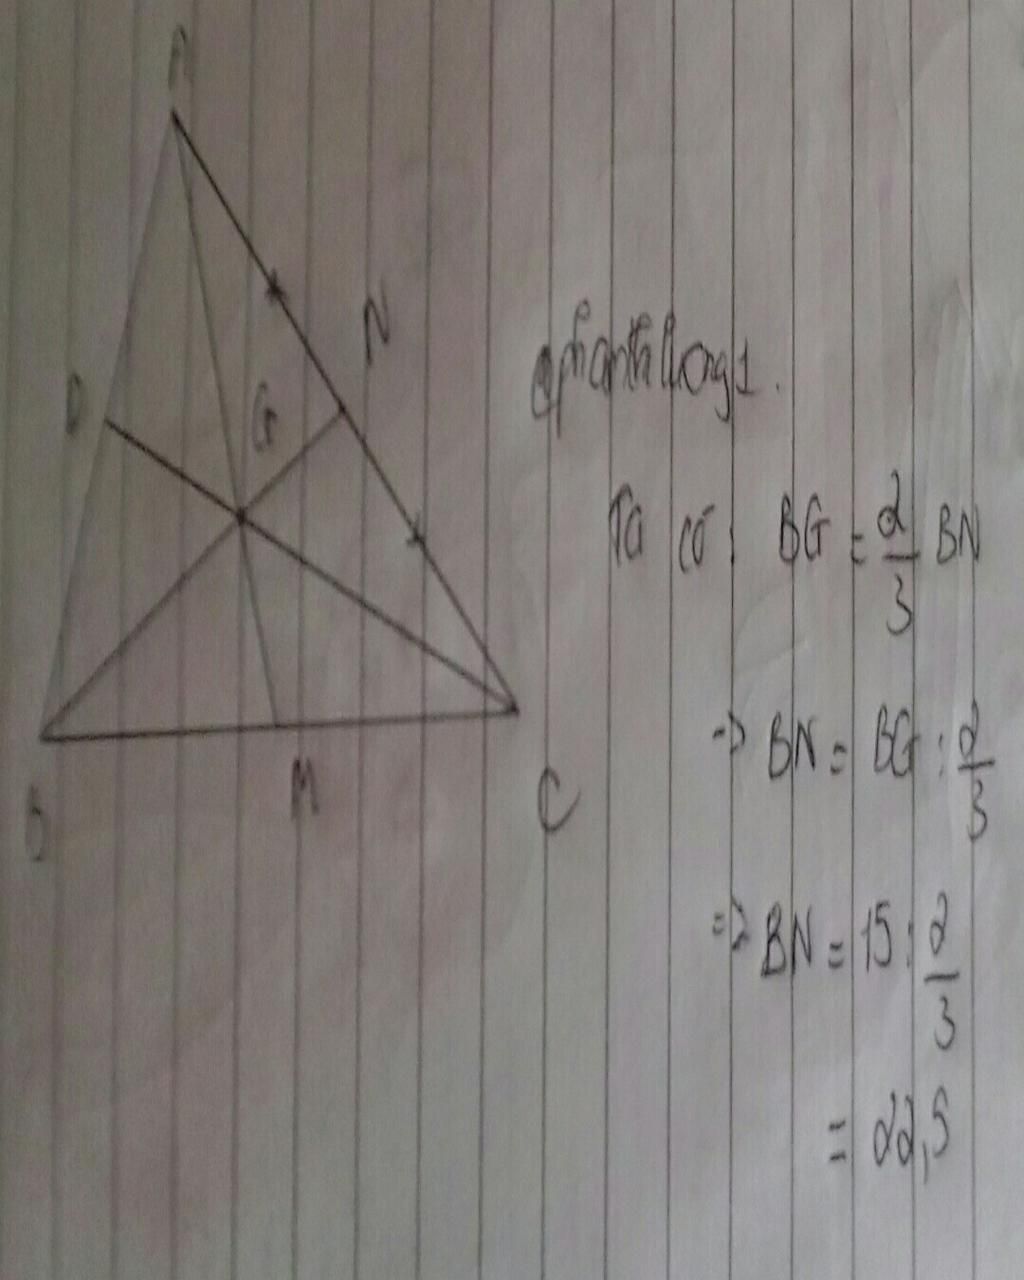 A
N
D
G
@phanthiluong1.
Ta có: BG = 2/3 BN
=> BN = BG : 2/3
=> BN = 15 : 2/3
= 22,5
B
M
C